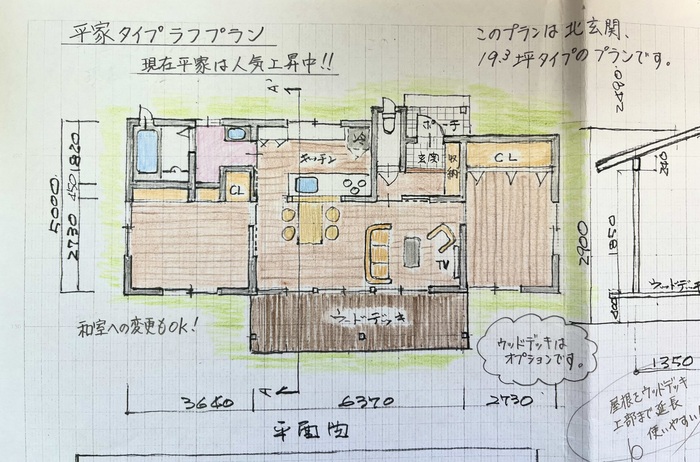 平家タイプラフプラン
現在平家は人気上昇中!!
このプランは北玄関、
19.3坪タイプのプランです。
A'
ポーチ
冷
キッチン
玄関
収納
CL
CL
TV
1820
450
2730
5000
ウッドデッキ
和室への変更もOK!
ウッドデッキは
オプションです。
A
3640
6370
2730
平面図
2900
ウッドデッキ
1350
屋根をウッドデッキ
上部まで延長
使いやすい